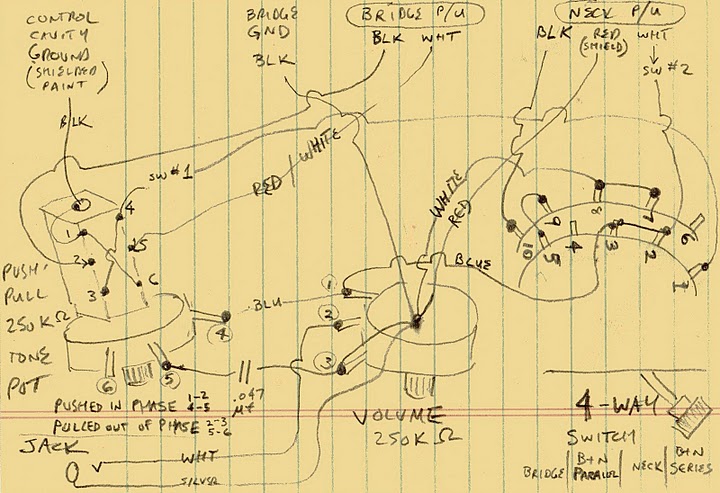 CONTROL
CAVITY
GROUND
(SHIELDED
PAINT)
BLK
BRIDGE
GND
BLK
BRIDGE P/U
BLK WHT
NECK P/U
BLK RED WHT
(SHIELD)
SW #2
SW #1
RED / WHITE
WHITE
RED
BLUE
1
2
3
4
5
6
PUSH/
PULL
250KΩ
TONE
POT
BLU
4
5
6
.047
µf
1
2
3
10
9
8
7
6
5
4
3
2
1
PUSHED IN PHASE 1-2
4-5
PULLED OUT OF PHASE 2-3
5-6
JACK
WHT
SILVER
VOLUME
250KΩ
4-WAY
SWITCH
BRIDGE | B+N PARALLEL | NECK | B+N SERIES